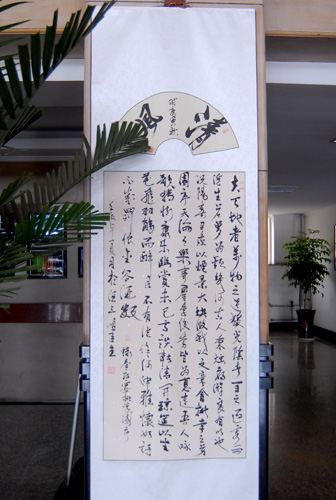 清風
夫天地者萬物之逆旅光陰者百代之過客而
浮生若夢為歡幾何古人秉燭夜遊良有以也
況陽春召我以煙景大塊假我以文章會桃李之芳
園序天倫之樂事群季俊秀皆為惠連吾人詠
歌獨慚康樂幽賞未已高談轉清開瓊筵以坐
花飛羽觴而醉月不有佳作何伸雅懷如詩
不成罰依金谷酒數